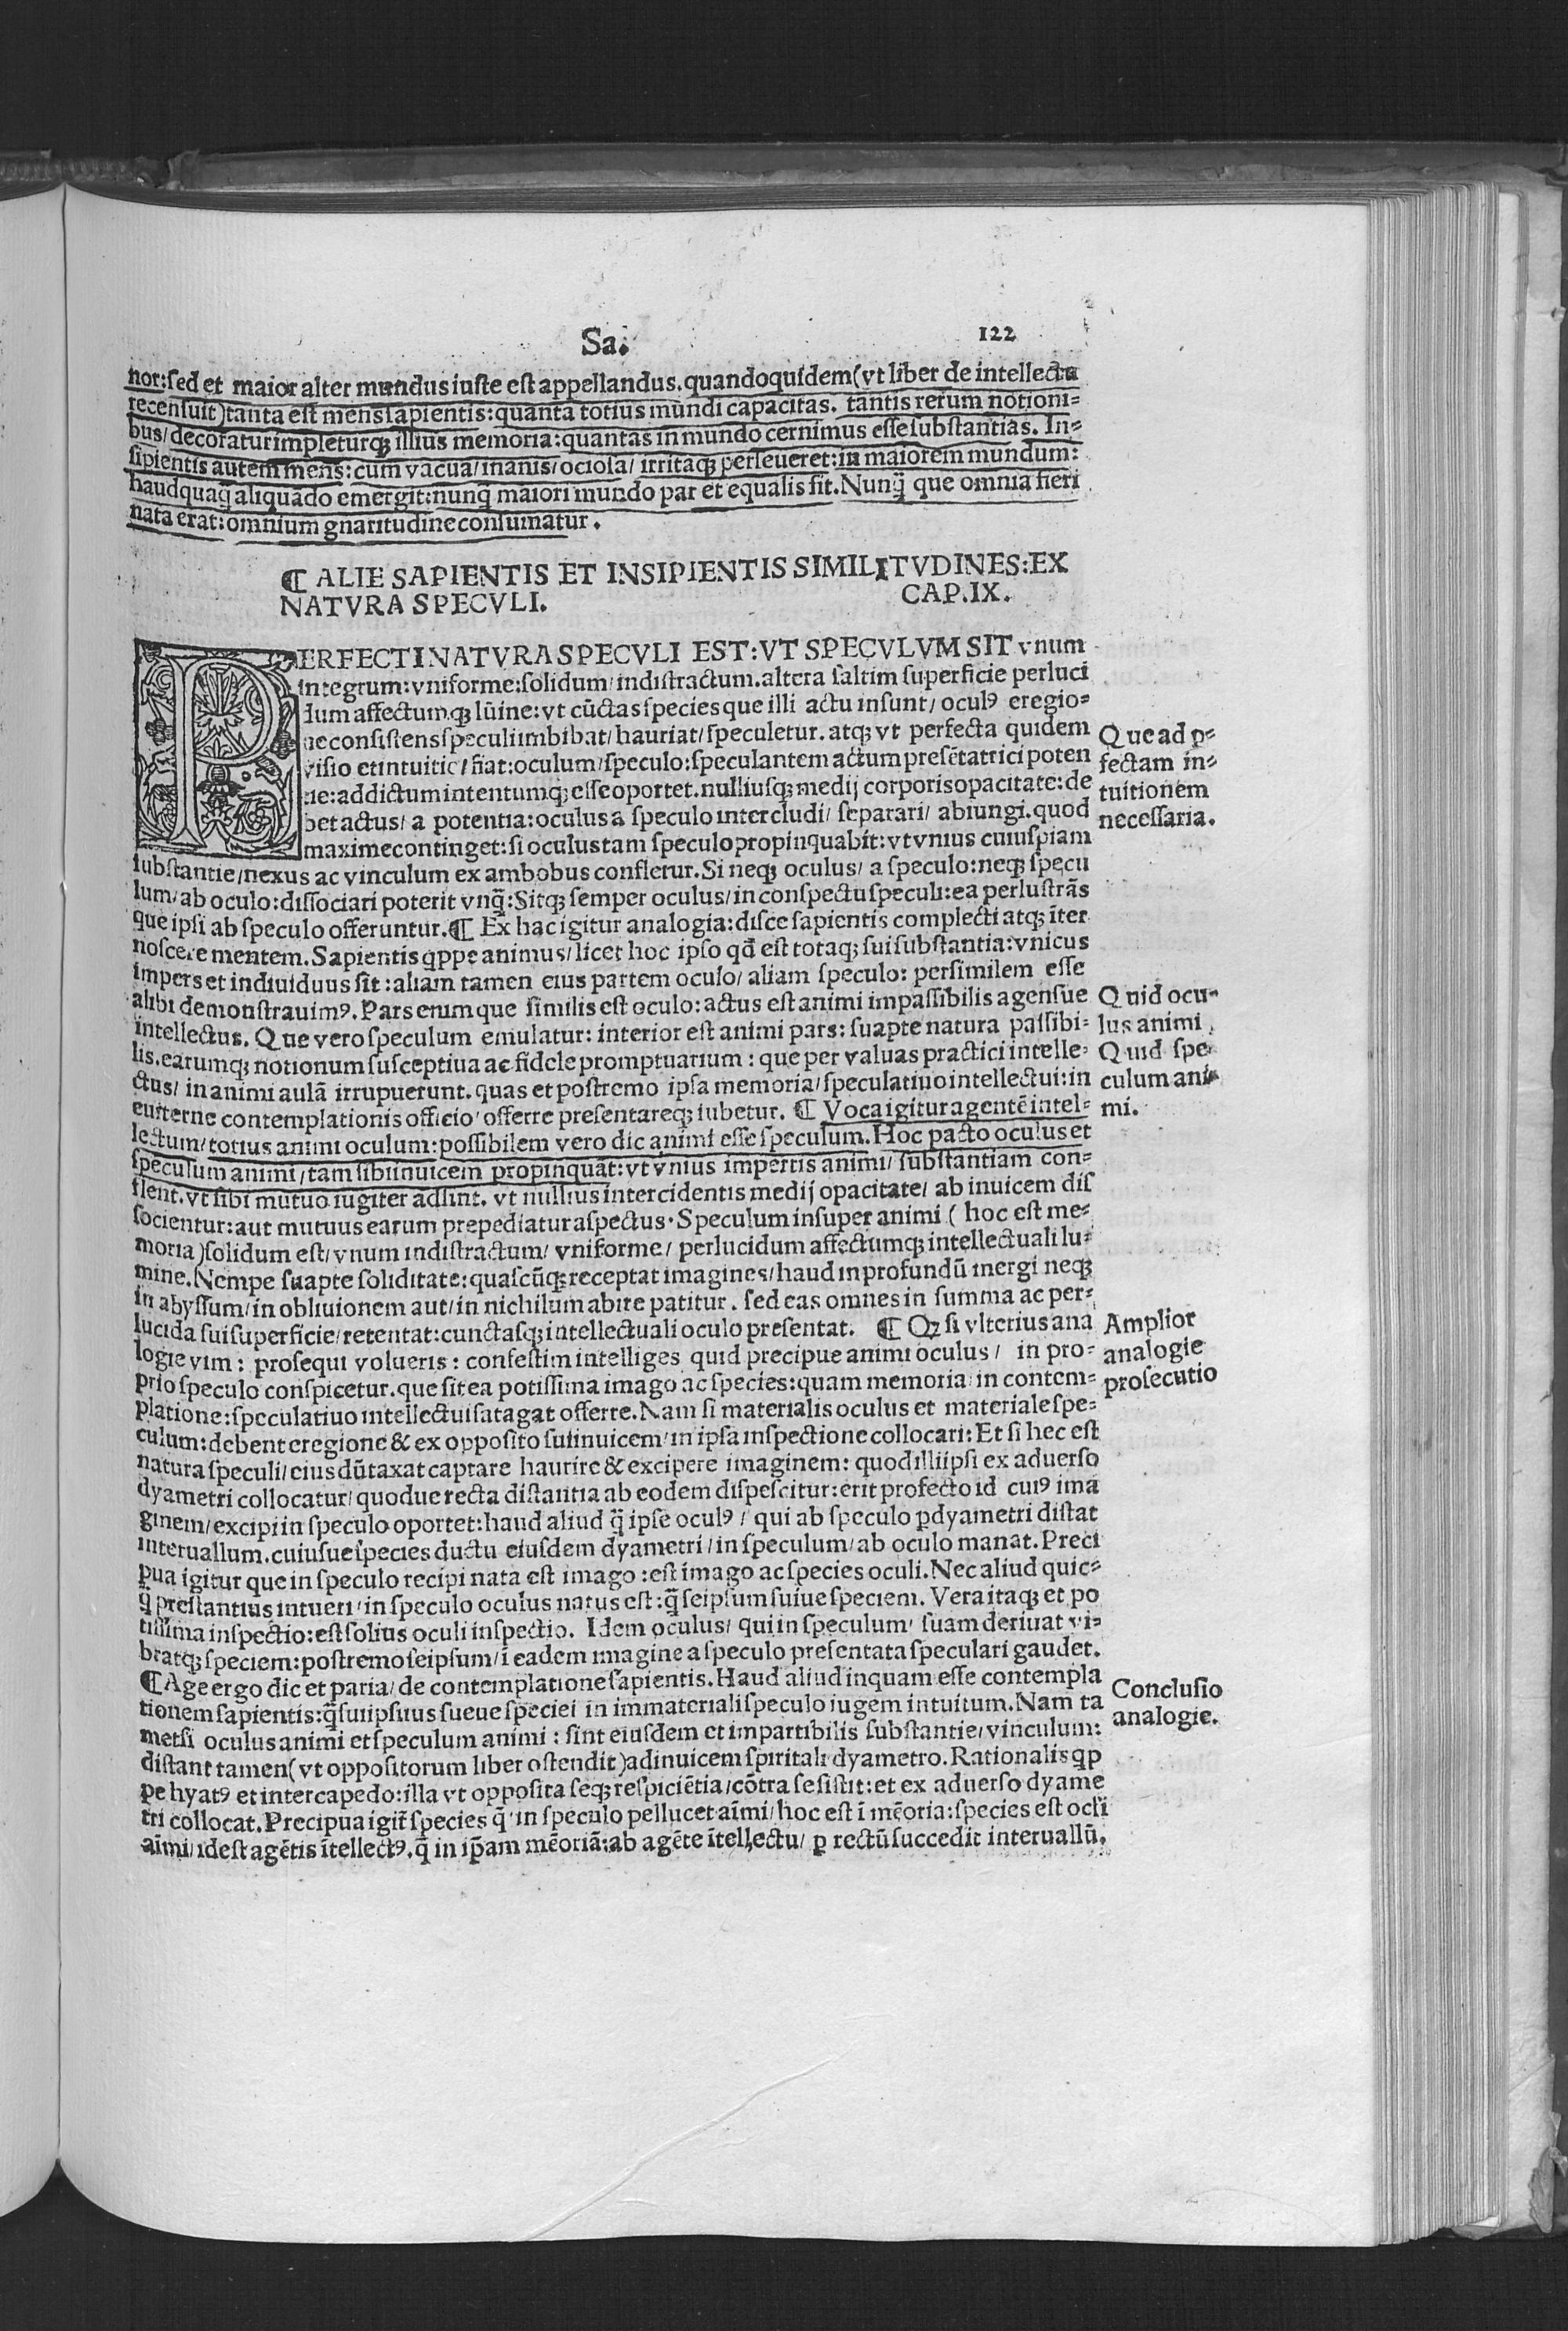 Sa.
122
nor:sed et maior alter mundus iuste est appellandus.quandoquidem(vt liber de intellectu
recensuit)tanta est mens sapientis:quanta totius mundi capacitas. tantis rerum notioni⸗
bus/decoratur impleturqꝫ illius memoria:quantas in mundo cernimus esse substantias. In⸗
sipientis autem mens:cum vacua/inanis/ociosa/irritaqꝫ perseueret:in maiorem mundum:
haudquaꝗ̃ aliquãdo emergit:nunꝗ̃ maiori mundo par et equalis fit.Nunꝗ̃ que omnia fieri
nata erat:omnium gnaritudine consumatur.
¶ ALIE SAPIENTIS ET INSIPIENTIS SIMILITVDINES:EX
NATVRA SPECVLI. CAP.IX.
PERFECTI NATVRA SPECVLI EST:VT SPECVLVM SIT vnum
integrum:vniforme:solidum/indistractum.altera saltim superficie perluci
dum affectumqꝫ lũine:vt cũctas species que illi actu insunt/oculꝰ eregio⸗
ne consistens speculi imbibat/hauriat/speculetur.atqꝫ vt perfecta quidem
visio et intuitio/fiat:oculum/speculo:speculantem actum presẽtatrici poten
tie:addictum intentumqꝫ esse oportet.nulliusqꝫ medij corporis opacitate:de
bet actus/a potentia:oculus a speculo intercludi/separari/abiungi.quod
maxime continget:si oculus tam speculo propinquabit:vt vnius cuiuspiam
substantie/nexus ac vinculum ex ambobus confletur.Si neqꝫ oculus/a speculo:neqꝫ specu
lum/ab oculo:dissociari poterit vnꝗ̃:Sitqꝫ semper oculus/in conspectu speculi:ea perlustrãs
que ipsi ab speculo offeruntur.¶ Ex hac igitur analogia:disce sapientis complecti atqꝫ ĩter
noscere mentem.Sapientis ꝗppe animus/licet hoc ipso qđ est totaqꝫ sui substantia:vnicus
impers et indiuiduus sit:aliam tamen eius partem oculo/aliam speculo:persimilem esse
alibi demonstrauimꝰ.Pars enim que similis est oculo:actus est animi impassibilis agensue
intellectus.Que vero speculum emulatur:interior est animi pars:suapte natura passibi⸗
lis.earumqꝫ notionum susceptiua ac fidele promptuarium:que per valuas practici intelle⸗
ctus/in animi aulã irrupuerunt.quas et postremo ipsa memoria/speculatiuo intellectui:in
euiterne contemplationis officio/offerre presentareqꝫ iubetur.¶ Voca igitur agentẽ intel⸗
lectum/totius animi oculum:possibilem vero dic animi esse speculum.Hoc pacto oculus et
speculum animi/tam sibi inuicem propinquãt:vt vnius impertis animi/substantiam con⸗
flent.vt sibi mutuo iugiter adsint.vt nullius intercidentis medij opacitate/ab inuicem dis
socientur:aut mutuus earum prepediatur aspectus.Speculum insuper animi(hoc est me⸗
moria)solidum est/vnum indistractum/vniforme/perlucidum affectumqꝫ intellectuali lu⸗
mine.Nempe suapte soliditate:quascũqꝫ receptat imagines/haud in profundũ mergi neqꝫ
in abyssum/in obliuionem aut/in nichilum abire patitur.sed eas omnes in summa ac per⸗
lucida sui superficie/retentat:cunctasqꝫ intellectuali oculo presentat. ¶ Qꝫ si vlterius ana
logie vim:prosequi volueris:confestim intelliges quid precipue animi oculus/in pro⸗
prio speculo conspicetur.que sit ea potissima imago ac species:quam memoria/in contem⸗
platione:speculatiuo intellectui satagat offerre.Nam si materialis oculus et materiale spe⸗
culum:debent eregione & ex opposito sui inuicem/in ipsa inspectione collocari:Et si hec est
natura speculi/eius dũtaxat captare haurire & excipere imaginem:quod illi ipsi ex aduerso
dyametri collocatur/quodue recta distantia ab eodem dispescitur:erit profecto id cuiꝰ ima
ginem/excipi in speculo oportet:haud aliud ꝗ̃ ipse oculꝰ/qui ab speculo ꝑ dyametri distat
interuallum.cuiusue species ductu eiusdem dyametri/in speculum/ab oculo manat.Preci
pua igitur que in speculo recipi nata est imago:est imago ac species oculi.Nec aliud quic⸗
ꝗ̃ prestantius intueri/in speculo oculus natus est:ꝗ̃ seipsum suiue speciem.Vera itaqꝫ et po
tissima inspectio:est solius oculi inspectio. Idem oculus/qui in speculum/suam deriuat vi⸗
bratqꝫ speciem:postremo seipsum/ĩ eadem imagine a speculo presentata speculari gaudet.
¶Age ergo dic et paria/de contemplatione sapientis.Haud aliud inquam esse contempla
tionem sapientis:ꝗ̃ sui ipsius sueue speciei in immateriali speculo iugem intuitum.Nam ta
metsi oculus animi et speculum animi:sint eiusdem et impartibilis substantie/vinculum:
distant tamen(vt oppositorum liber ostendit)adinuicem spiritali dyametro.Rationalis ꝗp
pe hyatꝰ et intercapedo:illa vt opposita seqꝫ respiciẽtia/cõtra se sistit:et ex aduerso dyame
tri collocat.Precipua igit̃ species q̃/in speculo pellucet aĩmi/hoc est ĩ mẽoria:species est oc̃li
aĩmi/idest agẽtis ĩtellectꝰ.q̃ in ip̃am mẽoriã:ab agẽte ĩtellectu/ꝑ rectũ succedit interuallũ.
Que ad ꝑ⸗
fectam in⸗
tuitionem
necessaria.
Quid ocu⸗
lus animi
Quid spe⸗
culum ani⸗
mi.
Amplior
analogie
prosecutio
Conclusio
analogie.